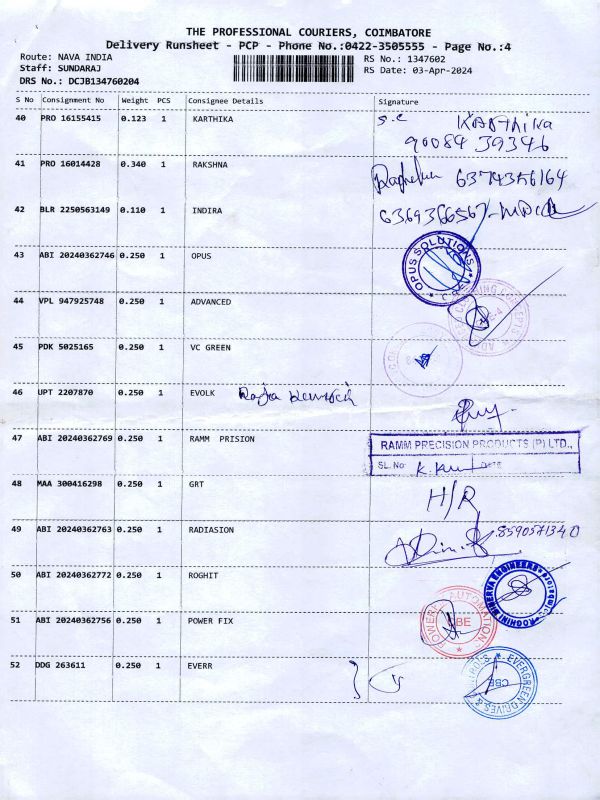 THE PROFESSIONAL COURIERS, COIMBATORE
Delivery Runsheet - PCP - Phone No.:0422-3505555 - Page No.:4
Route: NAVA INDIA
Staff: SUNDARAJ
DRS No.: DCJB134760204
RS No.: 1347602
RS Date: 03-Apr-2024
S No Consignment No Weight PCS Consignee Details Signature
40 PRO 16155415 0.123 1 KARTHIKA S.C KARTHIKA
90084 39346
41 PRO 16014428 0.340 1 RAKSHNA 6374356164
42 BLR 2250563149 0.110 1 INDIRA 6369366567
43 ABI 20240362746 0.250 1 OPUS OPUS SOLUTIONS
44 VPL 947925748 0.250 1 ADVANCED
45 PDK 5025165 0.250 1 VC GREEN
46 UPT 2207870 0.250 1 EVOLK Raja
47 ABI 20240362769 0.250 1 RAMM PRISION RAMM PRECISION PRODUCTS (P) LTD.,
SL. No DATE
48 MAA 300416298 0.250 1 GRT H/R
49 ABI 20240362763 0.250 1 RADIASION 8590571340
50 ABI 20240362772 0.250 1 ROGHIT ROGHINI MINERVA ENGINEERS
51 ABI 20240362756 0.250 1 POWER FIX AUTOMATION CBE
52 DDG 263611 0.250 1 EVERR EVERGREEN DRIVES & CBE